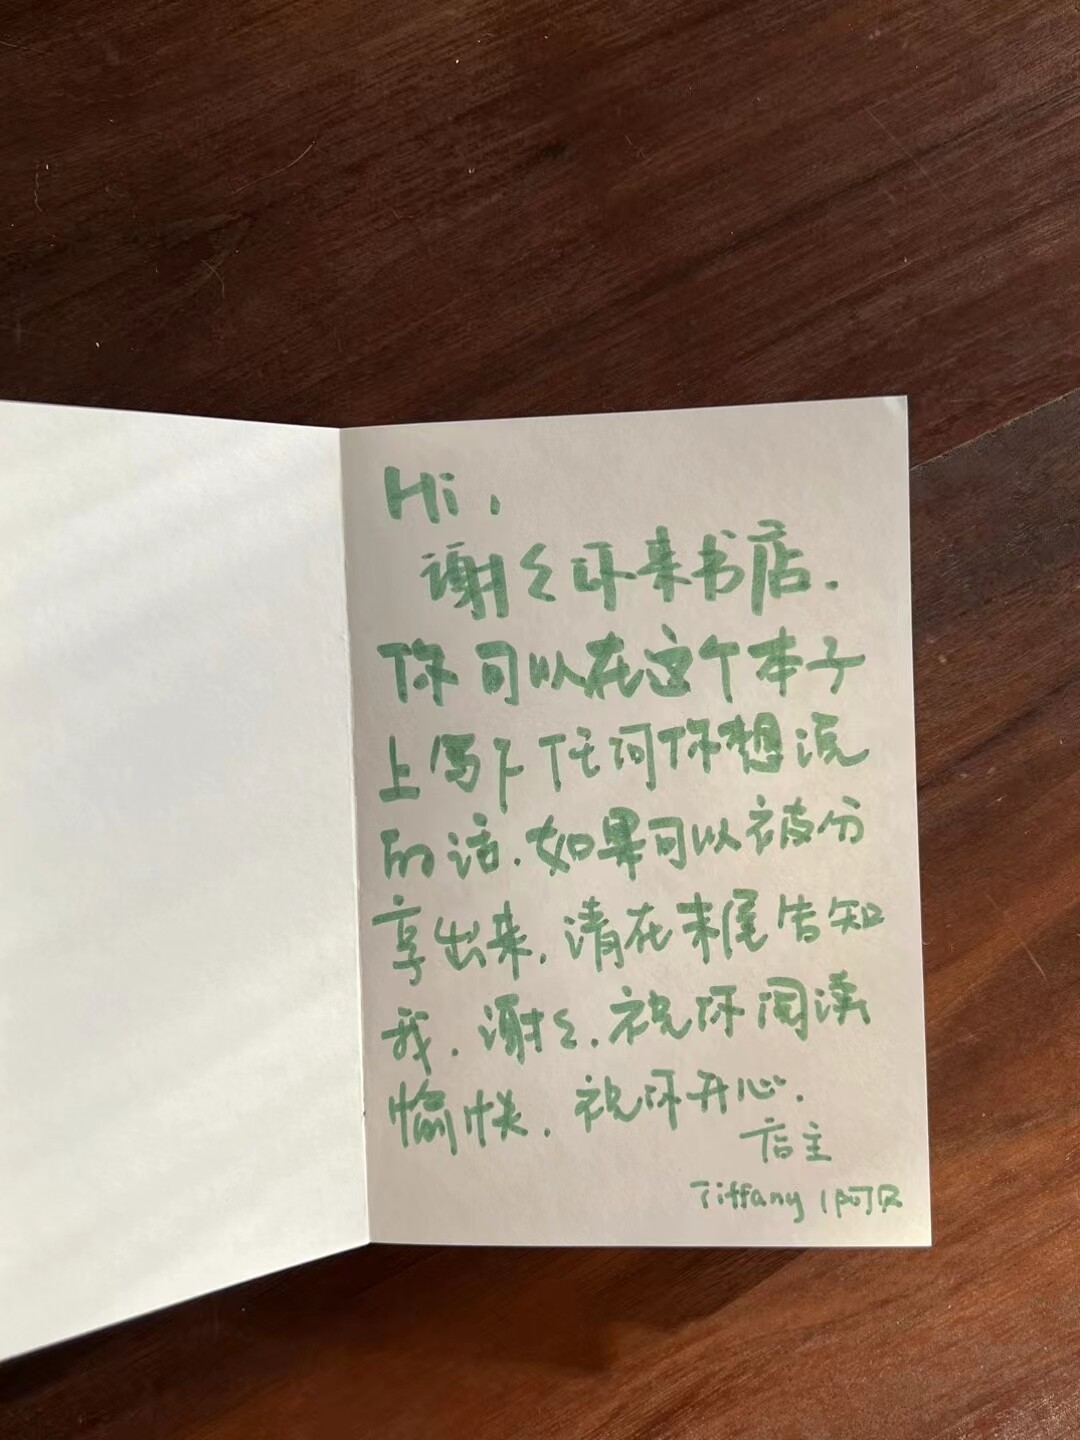 Hi,
谢谢你来书店.
你可以在这个本子
上写下任何你想说
的话.如果可以被分
享出来,请在末尾告知
我.谢谢.祝你阅读
愉快.祝你开心.
店主
Tiffany | 阿贝